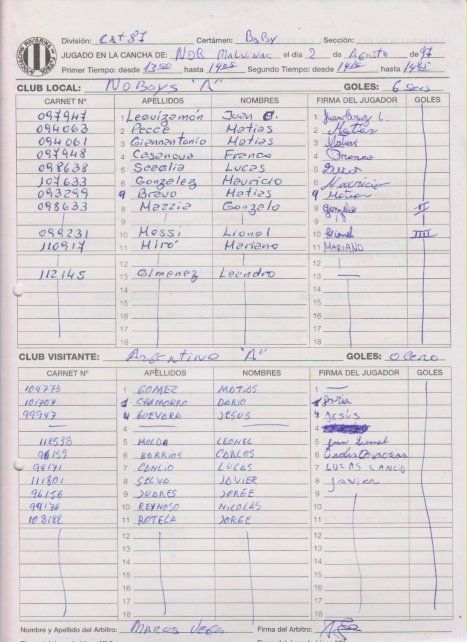 División: CAT 87 Certámen: BABY Sección:
JUGADO EN LA CANCHA DE: NOB Malvinas el día 2 de Agosto de 97
Primer Tiempo: desde 13 50 hasta Segundo Tiempo: desde hasta
CLUB LOCAL: N O Boys "A" GOLES: 6 Seis
CARNET Nº APELLIDOS NOMBRES FIRMA DEL JUGADOR GOLES
097947 1 Leguizamón Juan C. Juan Cruz L.
094063 2 Pecce Matias Matias
094061 3 Giannantonio Matias Matias
097948 4 Casanova Franco Franco
098638 5 Scaglia Lucas Lucas
107633 6 Gonzalez Mauricio Mauricio
093299 9 Bravo Matias Matias
098633 8 Mazzia Gonzalo Gonzalo II
9
099231 10 Messi Lionel Lionel IIII
110917 11 Miró Mariano MARIANO
12
112145 13 Gimenez Leandro 13
14
15
16
17
18
CLUB VISITANTE: Argentino "A" GOLES: 0 Cero
CARNET Nº APELLIDOS NOMBRES FIRMA DEL JUGADOR GOLES
104773 1 GOMEZ MATIAS 1
101707 CHAMORRO DARIO Dario
99947 4 GUEVARA JESUS 4 JESÚS
4
112538 5 MOLDA LEONEL 5
96159 6 BARRIOS CARLOS 6
94171 7 CANCIO LUCAS 7 LUCAS CANCIO
111801 8 SALVO JAVIER 8 Javier
96156 9 JUARES JORGE 9
94176 10 REYNOSO NICOLAS 10
103122 11 ROTELA JORGE 11
12
13
14
15
16
17
18
Nombre y Apellido del Arbitro: MARCOS VEGA Firma del Arbitro: